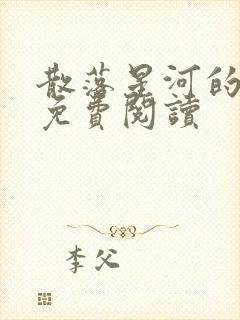 散落星河的
免費閱讀
李父